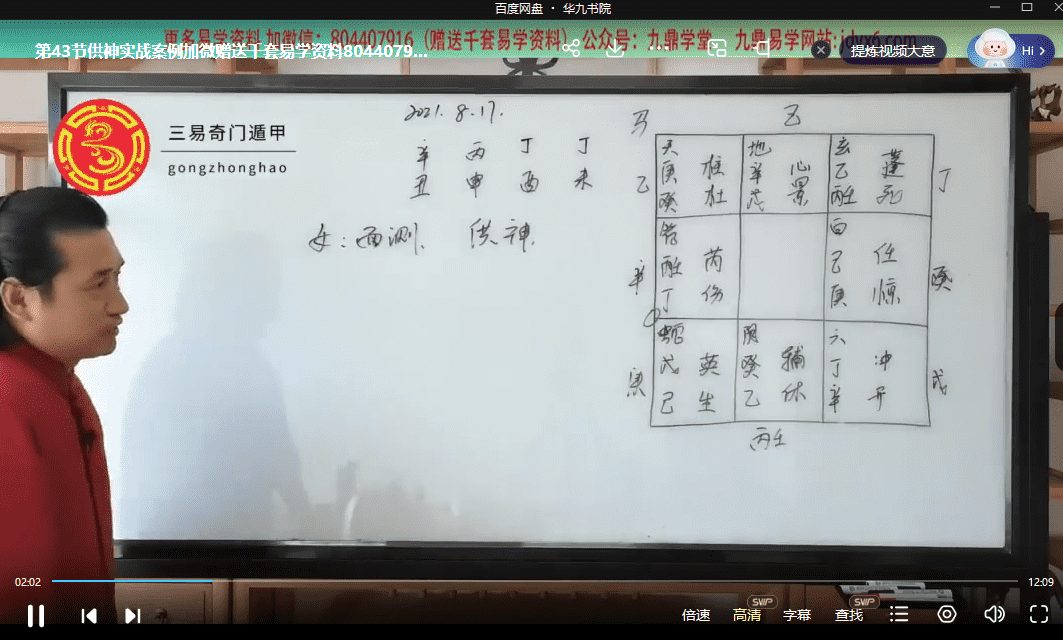 百度网盘 · 华九书院
更多易学资料 加微信：804407916（赠送千套易学资料）公众号：九鼎学堂 九鼎易学网站:jdyx6.com
第43节供神实战案例加微赠送千套易学资料8044079...
提炼视频大意
Hi
三易奇门遁甲
gongzhonghao
2021.8.17.
辛 丙 丁 丁
丑 申 酉 未
女：面测. 供神.
马 乙
地
辛 心
景
玄
乙 蓬
死
丁
乙
丁
芮
伤
白
己 任
庚 惊
辛
癸
戊 英
己 生
阴
癸 辅
乙 休
六
丁 冲
辛 开
戊
丙壬
02:02
12:09
倍速
高清
SVIP
字幕
查找
SVIP